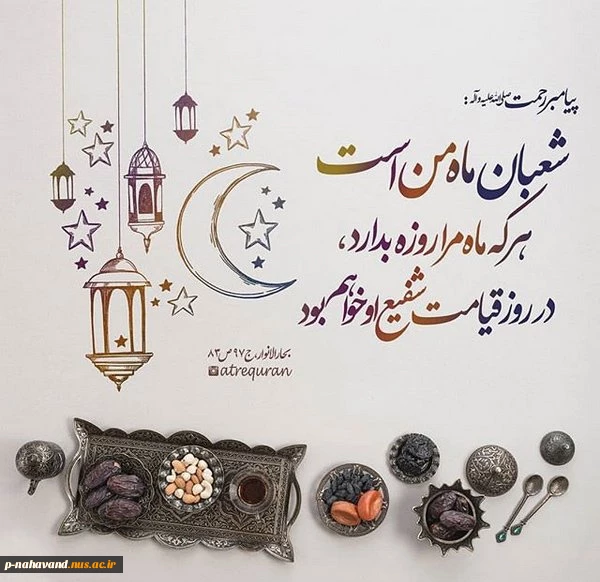 پیامبر رحمت صلی الله علیه و آله:
شعبان ماه من است
هر که ماه مرا روزه بدارد،
در روز قیامت شفیع او خواهم بود
بحارالانوار، ج ۹۷ ص ۸۳
atrequran
p-nahavand.nus.ac.ir